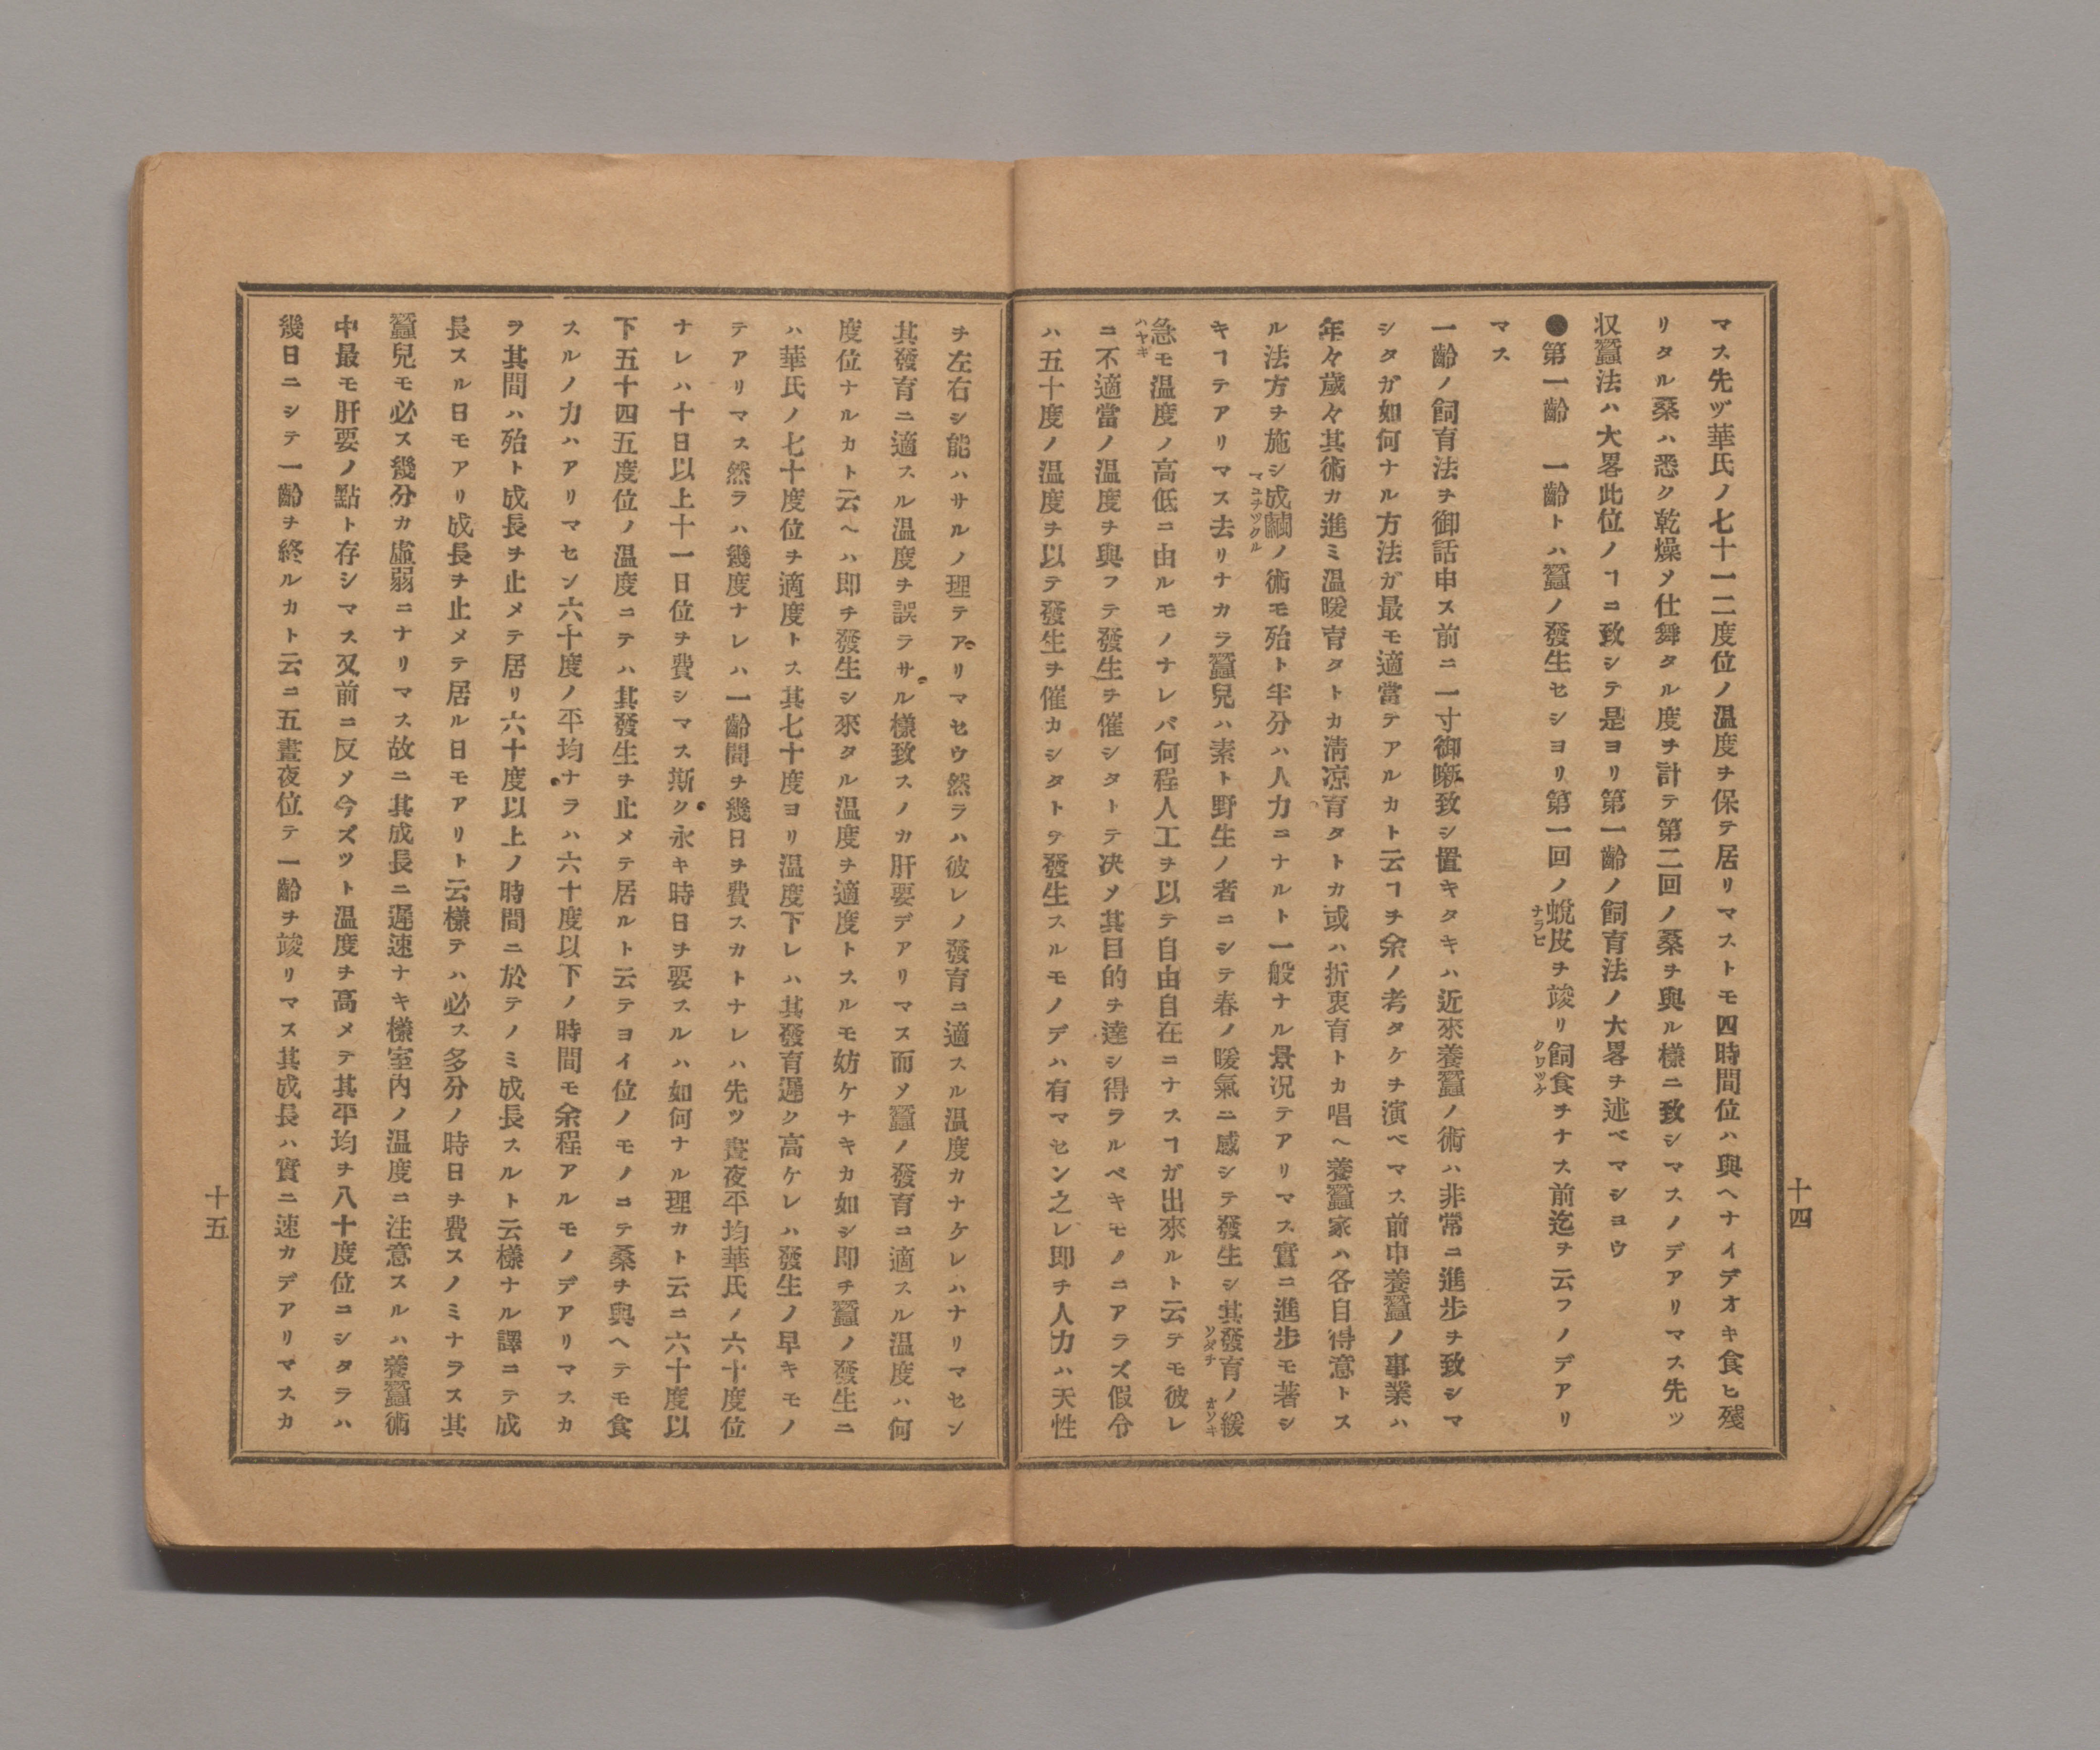 マス先ヅ華氏ノ七十一二度位ノ温度ヲ保テ居リマストモ四時間位ハ與ヘナイデオキ食ヒ殘
リタル桑ハ悉ク乾燥〆仕舞タル度ヲ計テ第二回ノ桑ヲ與ル樣ニ致シマスノデアリマス先ツ
収蠶法ハ大畧此位ノヿニ致シテ是ヨリ第一齡ノ飼育法ノ大畧ヲ述ベマシヨウ
●第一齡　一齡トハ蠶ノ發生セシヨリ第一回ノ蛻皮ヲ竣リ飼食ヲナス前迄ヲ云フノデアリ
マス
一齡ノ飼育法ヲ御話申ス前ニ一寸御噺致シ置キタキハ近來養蠶ノ術ハ非常ニ進步ヲ致シマ
シタガ如何ナル方法ガ最モ適當テアルカト云ヿヲ余ノ考タケヲ演ベマス前中養蠶ノ事業ハ
年々歲々其術カ進ミ温暖育タトカ淸凉育タトカ或ハ折衷育トカ唱ヘ養蠶家ハ各自得意トス
ル法方ヲ施シ成繭ノ術モ殆ト半分ハ人力ニナルト一般ナル景况テアリマス實ニ進步モ著シ
キヿテアリマス去リナカラ蠶兒ハ素ト野生ノ者ニシテ春ノ暖氣ニ感シテ發生シ其發育ノ緩
急モ温度ノ高低ニ由ルモノナレバ何程人工ヲ以テ自由自在ニナスヿガ出來ルト云テモ彼レ
ニ不適當ノ温度ヲ與フテ發生ヲ催シタトテ决〆其目的ヲ達シ得ラルベキモノニアラズ假令
ハ五十度ノ温度ヲ以テ發生ヲ催カシタトテ發生スルモノデハ有マセン之レ即チ人力ハ天性
十四
ヲ左右シ能ハサルノ理テアリマセウ然ラハ彼レノ發育ニ適スル温度カナケレハナリマセン
其發育ニ適スル温度ヲ誤ラサル樣致スノカ肝要デアリマス而〆蠶ノ發育ニ適スル温度ハ何
度位ナルカト云ヘハ即チ發生シ來タル温度ヲ適度トスルモ妨ケナキカ如シ即チ蠶ノ發生ニ
ハ華氏ノ七十度位ヲ適度トス其七十度ヨリ温度下レハ其發育遲ク高ケレハ發生ノ早キモノ
テアリマス然ラハ幾度ナレハ一齡間ヲ幾日ヲ費スカトナレハ先ツ晝夜平均華氏ノ六十度位
ナレハ十日以上十一日位ヲ費シマス斯ク永キ時日ヲ要スルハ如何ナル理カト云ニ六十度以
下五十四五度位ノ温度ニテハ其發生ヲ止メテ居ルト云テヨイ位ノモノニテ桑ヲ與ヘテモ食
スルノ力ハアリマセン六十度ノ平均ナラハ六十度以下ノ時間モ余程アルモノデアリマスカ
ラ其間ハ殆ト成長ヲ止メテ居リ六十度以上ノ時間ニ於テノミ成長スルト云樣ナル譯ニテ成
長スル日モアリ成長ヲ止メテ居ル日モアリト云樣テハ必ス多分ノ時日ヲ費スノミナラス其
蠶兒モ必ス幾分カ虛弱ニナリマス故ニ其成長ニ遲速ナキ樣室內ノ温度ニ注意スルハ養蠶術
中最モ肝要ノ點ト存シマス又前ニ反〆今ズツト温度ヲ高メテ其平均ヲ八十度位ニシタラハ
幾日ニシテ一齡ヲ終ルカト云ニ五晝夜位テ一齡ヲ竣リマス其成長ハ實ニ速カデアリマスカ
十五